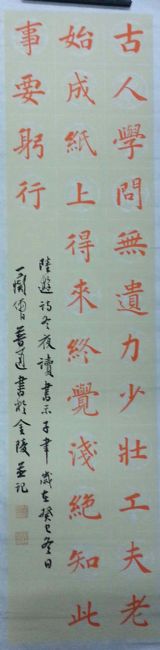 古人學問無遺力少壯工夫老
始成紙上得來終覺淺絕知此
事要躬行
陸遊詩冬夜讀書示子聿歲在癸巳冬日
書於金陵並記